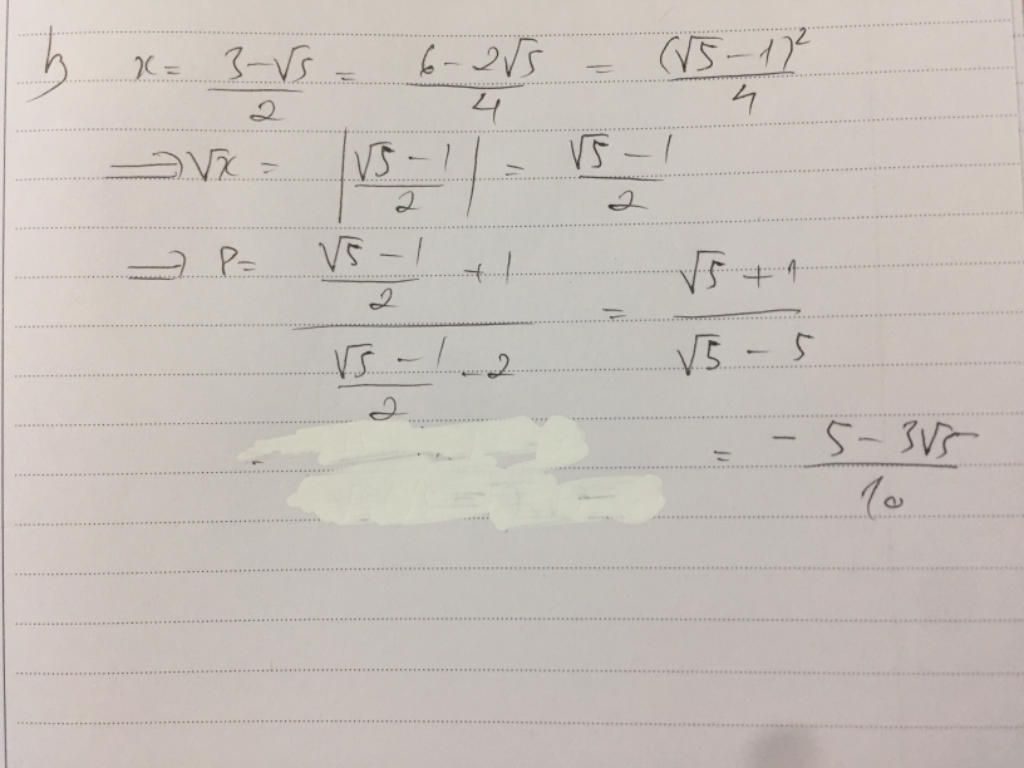 b) x = \frac{3-\sqrt{5}}{2} = \frac{6-2\sqrt{5}}{4} = \frac{(\sqrt{5}-1)^2}{4}
⟹ \sqrt{x} = \left|\frac{\sqrt{5}-1}{2}\right| = \frac{\sqrt{5}-1}{2}
⟹ P = \frac{\frac{\sqrt{5}-1}{2}+1}{\frac{\sqrt{5}-1}{2}-2} = \frac{\sqrt{5}+1}{\sqrt{5}-5}
= \frac{-5-3\sqrt{5}}{10}